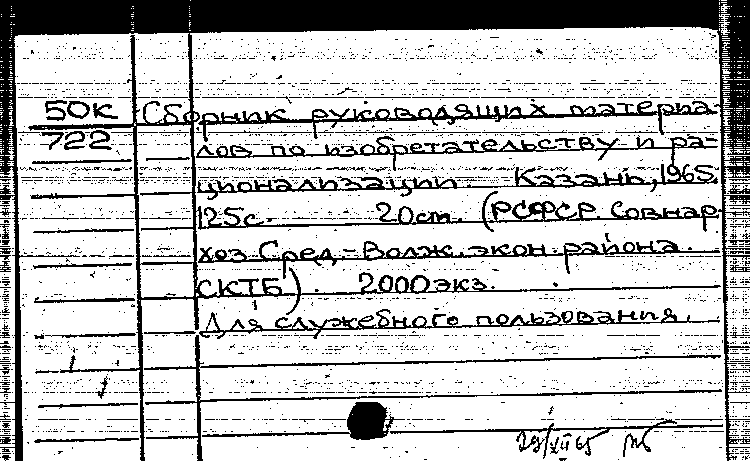 50К Сборник руководящих материа-
722 лов по изобретательству и ра-
ционализации. Казань, 1965.
125с. 20см. (РСФСР. Совнар-
хоз Сред.-Волж. экон. района.
СКТБ). 2000 экз.
Для служебного пользования.